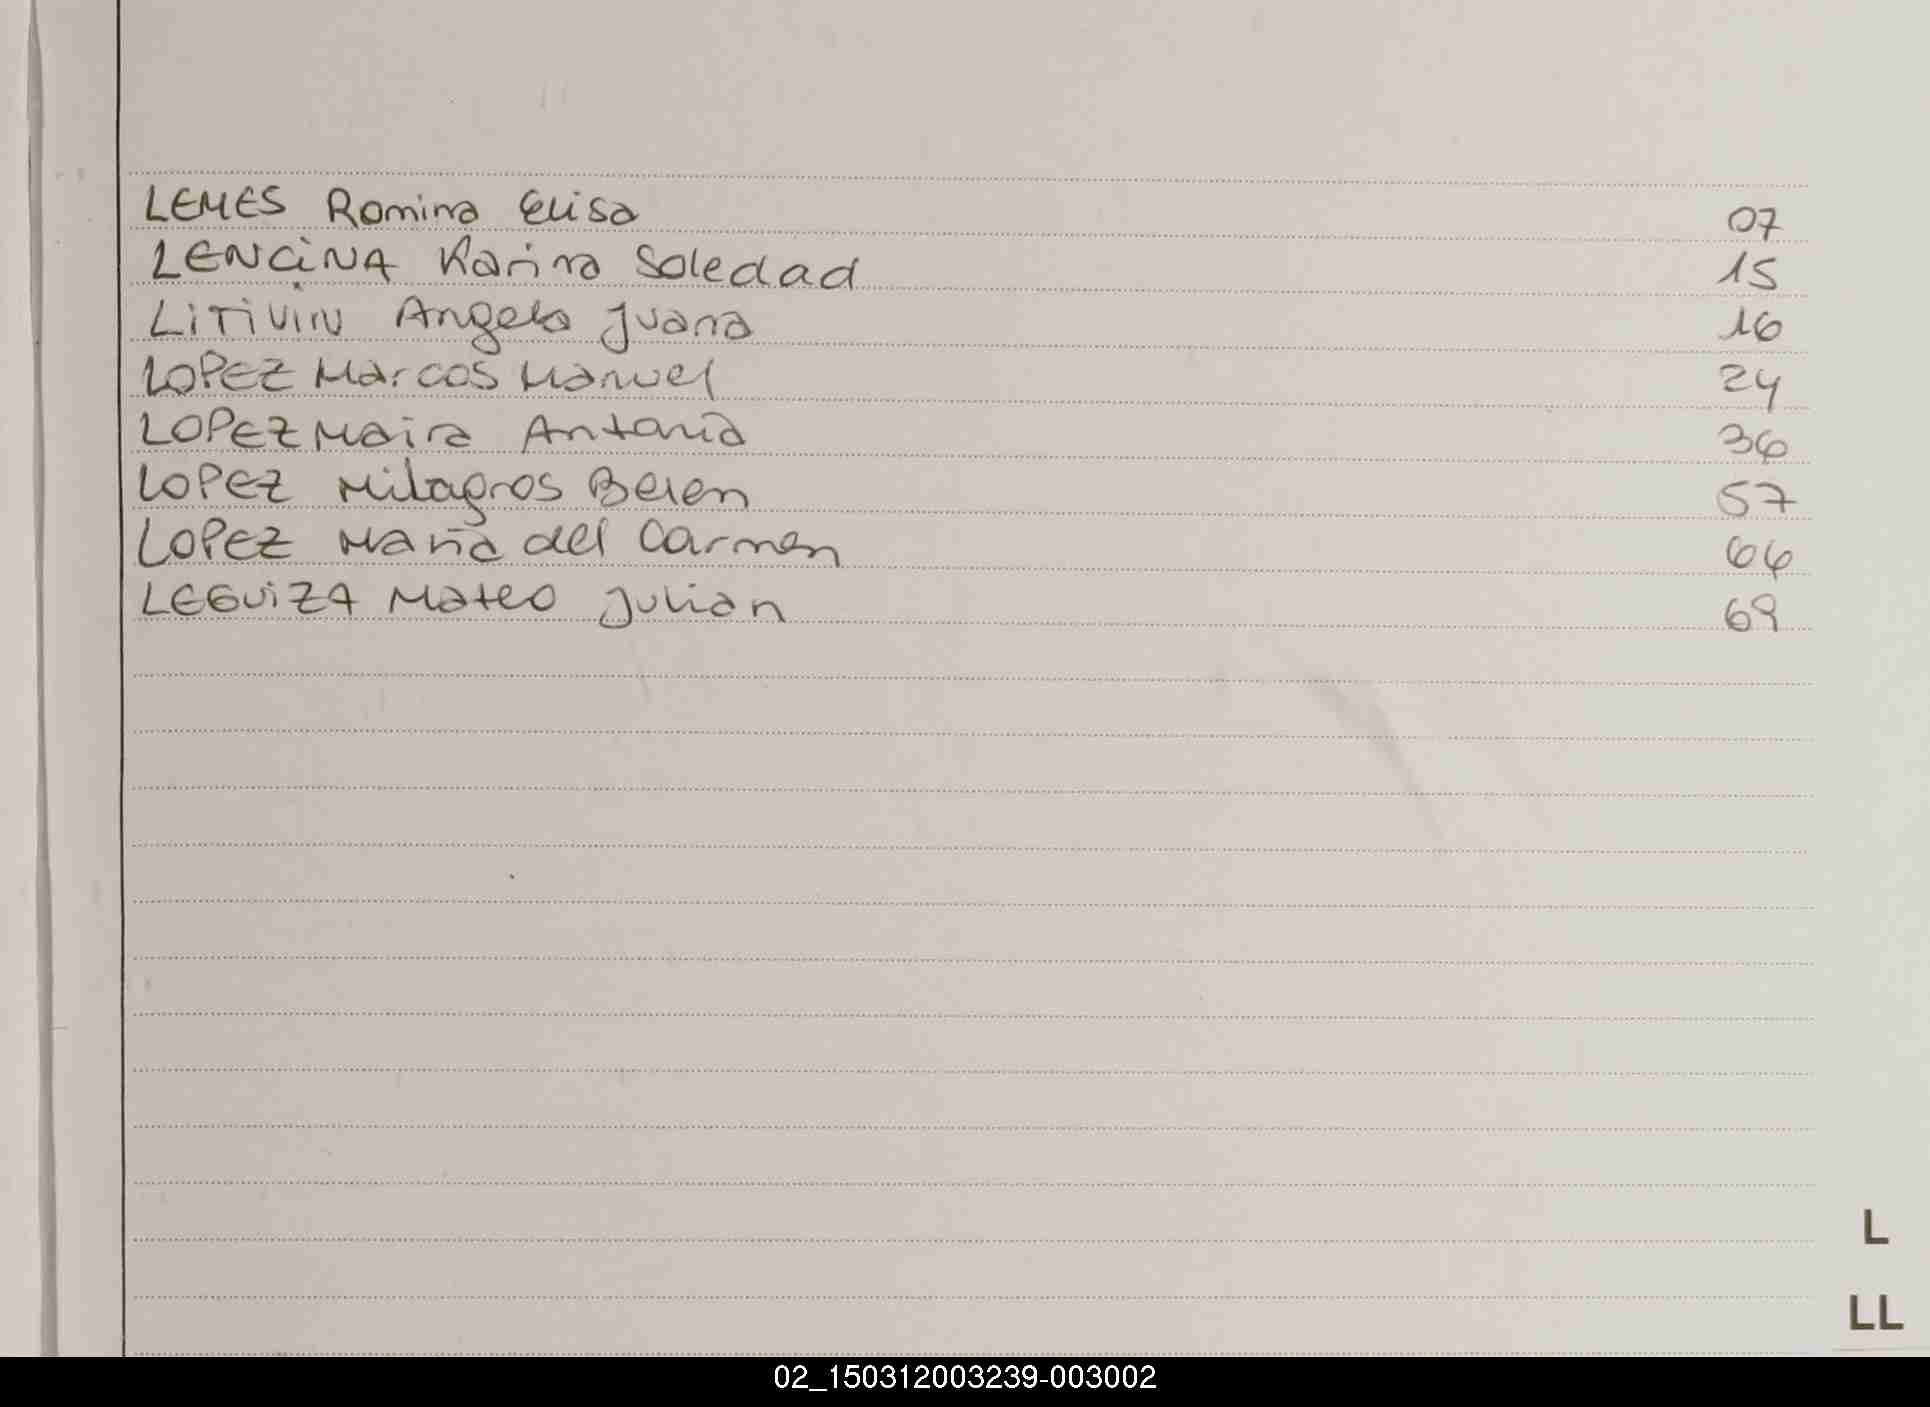 LEMES Romina Elisa 07
LENCINA Karina Soledad 15
LITIVIN Angela Juana 16
LOPEZ Marcos Manuel 24
LOPEZ Maira Antonia 36
LOPEZ Milagros Belen 57
LOPEZ Maria del Carmen 66
LEGUIZA Mateo Julian 69
L
LL
02_150312003239-003002